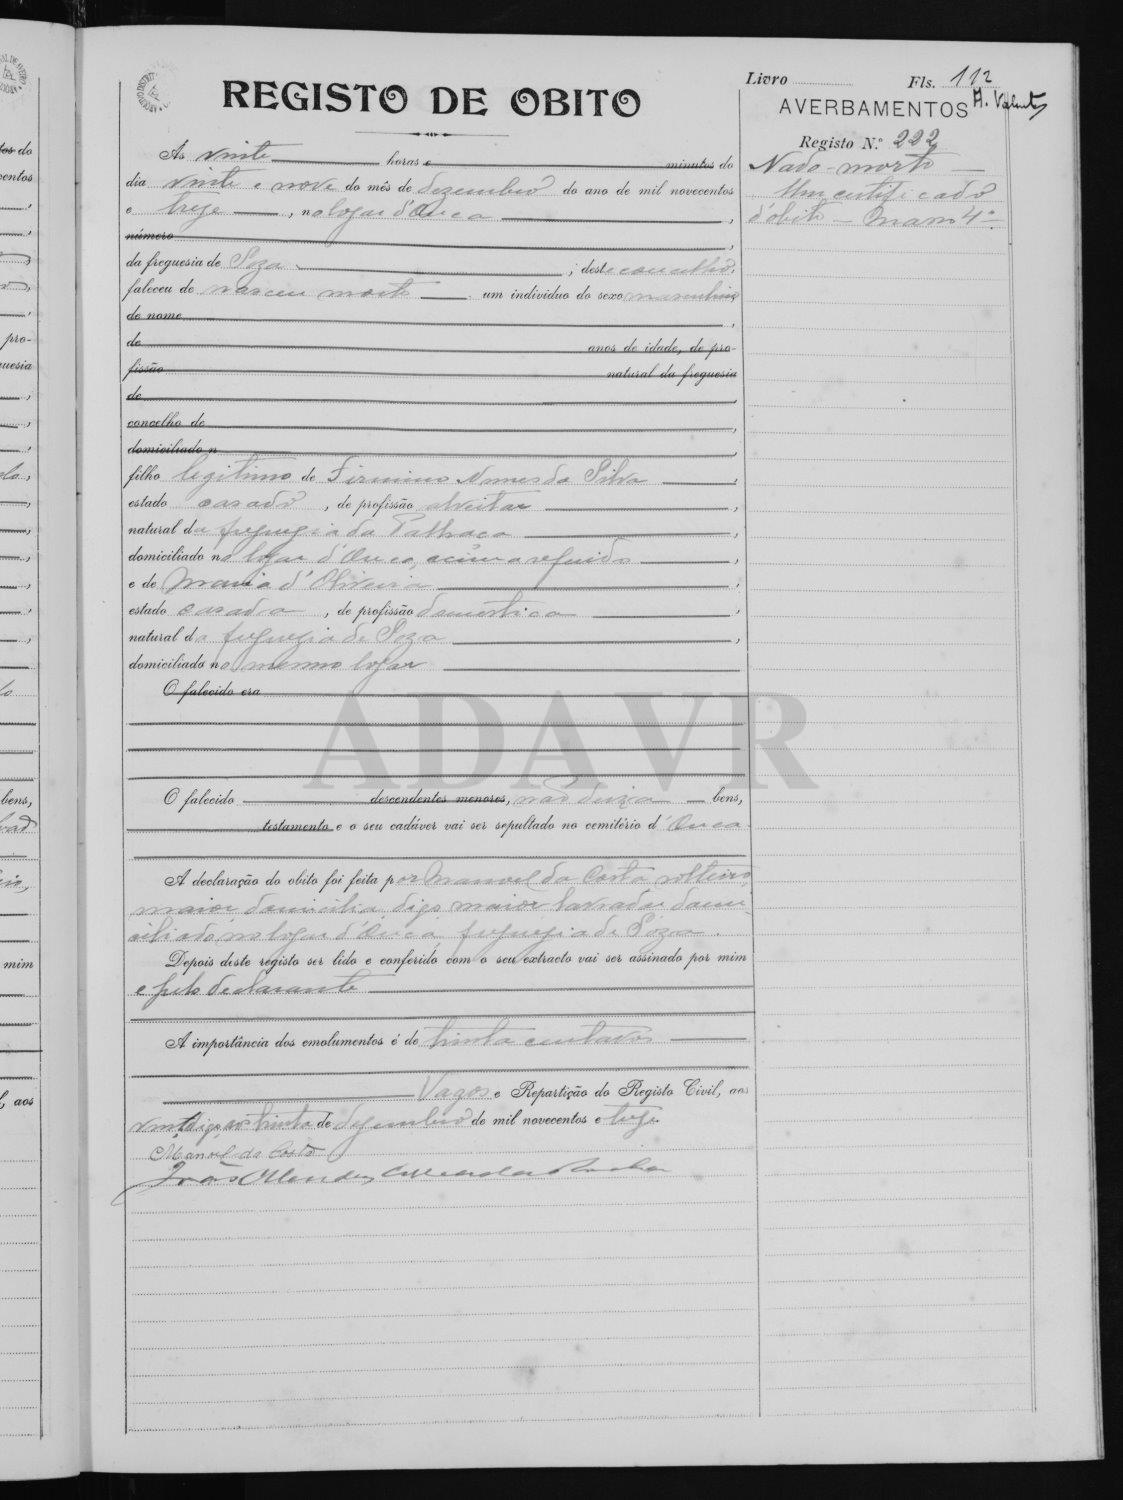 Livro Fls. 112
REGISTO DE OBITO
AVERBAMENTOS
Registo N.º 222
Nado-morto
Um certificado
d'óbito
As vinte horas e minutos do
dia vinte e nove do mês de dezembro do ano de mil novecentos
e treze, no logar d'Ouca,
número,
da freguesia de Soza; deste concelho,
faleceu de nasceu morto um individuo do sexo masculino
de nome,
de anos de idade, de pro-
fissão natural da freguesia
de,
concelho de,
domiciliado n,
filho legitimo de Firmino Nunes da Silva,
estado casado, de profissão alveitar,
natural da freguezia da Palhaça,
domiciliado no logar d'Ouca, acima referido,
e de Maria d'Oliveira,
estado casada, de profissão domestica,
natural da freguezia de Soza,
domiciliada no mesmo logar
O falecido era
ADAVR
O falecido descendentes menores, não deixa bens,
testamento e o seu cadáver vai ser sepultado no cemitério d'Ouca
A declaração do obito foi feita por Manoel da Costa solteiro
maior domicilia digo maior lavrador domi-
ciliado no logar d'Ouca freguezia de Soza.
Depois deste registo ser lido e conferido com o seu extracto vai ser assinado por mim
e pelo declarante
A importância dos emolumentos é de trinta centavos
Vagos e Repartição do Registo Civil, aos
vinte digo aos trinta de dezembro de mil novecentos e treze.
Manoel da Costa
João Mendes Correia da Rocha